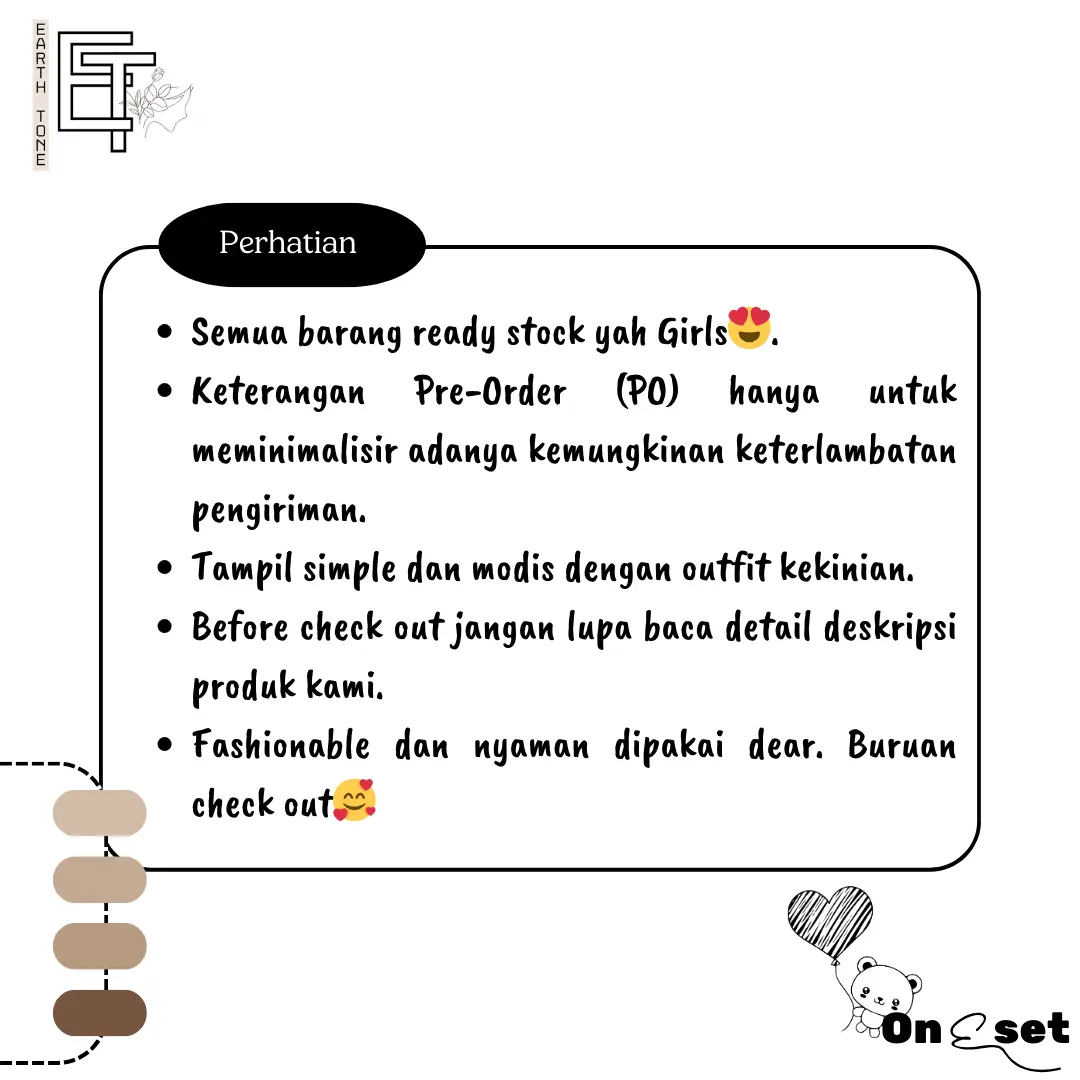 EARTH TONE
ET
Perhatian
• Semua barang ready stock yah Girls😍.
• Keterangan Pre-Order (PO) hanya untuk
meminimalisir adanya kemungkinan keterlambatan
pengiriman.
• Tampil simple dan modis dengan outfit kekinian.
• Before check out jangan lupa baca detail deskripsi
produk kami.
• Fashionable dan nyaman dipakai dear. Buruan
check out🥰
On E set